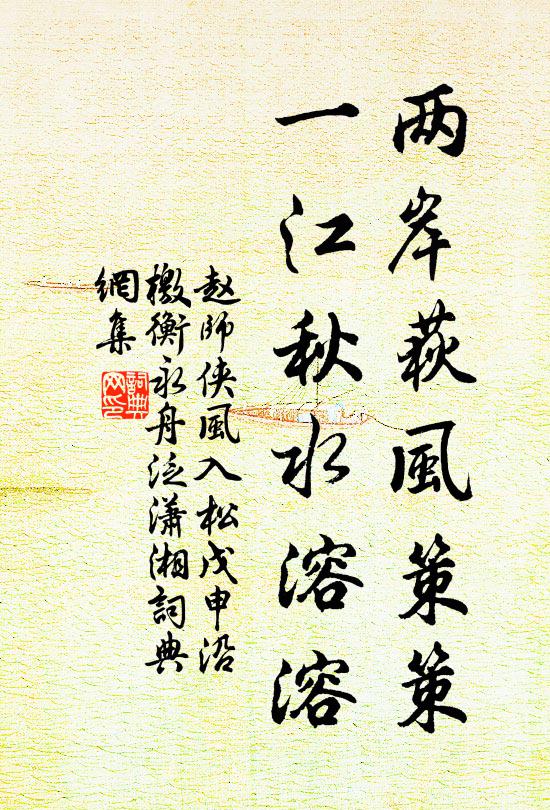 两岸荻風策策
一江秋水溶溶
赵師侠風入松戊申沿
檄衡永舟泛瀟湘詞典
網集
詞典
网印